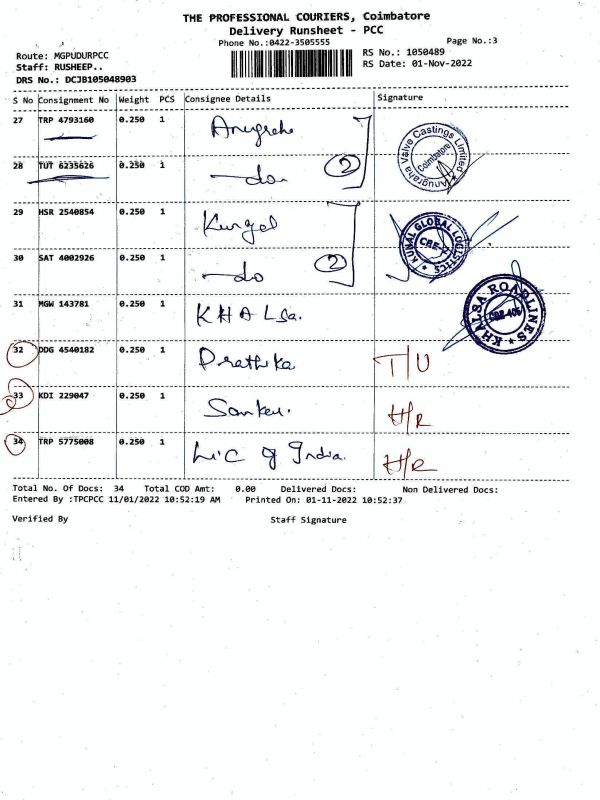 THE PROFESSIONAL COURIERS, Coimbatore
Delivery Runsheet - PCC
Phone No.:0422-3505555
Page No.:3
Route: MGPUDURPCC
RS No.: 1050489
Staff: RUSHEEP..
RS Date: 01-Nov-2022
DRS No.: DCJB105048903
S No Consignment No Weight PCS Consignee Details Signature
27 TRP 4793160 0.250 1 Anugraha
Anugraha Valve Castings Limited * Coimbatore
28 TUT 6235626 0.250 1 do 2
29 HSR 2540854 0.250 1
KUNAL GLOBAL LOGISTICS * CBE-2
30 SAT 4002926 0.250 1 do 2
31 MGW 143781 0.250 1 KHALSa.
KHALSA ROADLINES * CBE-406
32 DDG 4540182 0.250 1 Prathika T/U
33 KDI 229047 0.250 1 H/R
34 TRP 5775008 0.250 1 LIC of India. H/R
Total No. Of Docs: 34 Total COD Amt: 0.00 Delivered Docs: Non Delivered Docs:
Entered By :TPCPCC 11/01/2022 10:52:19 AM Printed On: 01-11-2022 10:52:37
Verified By Staff Signature